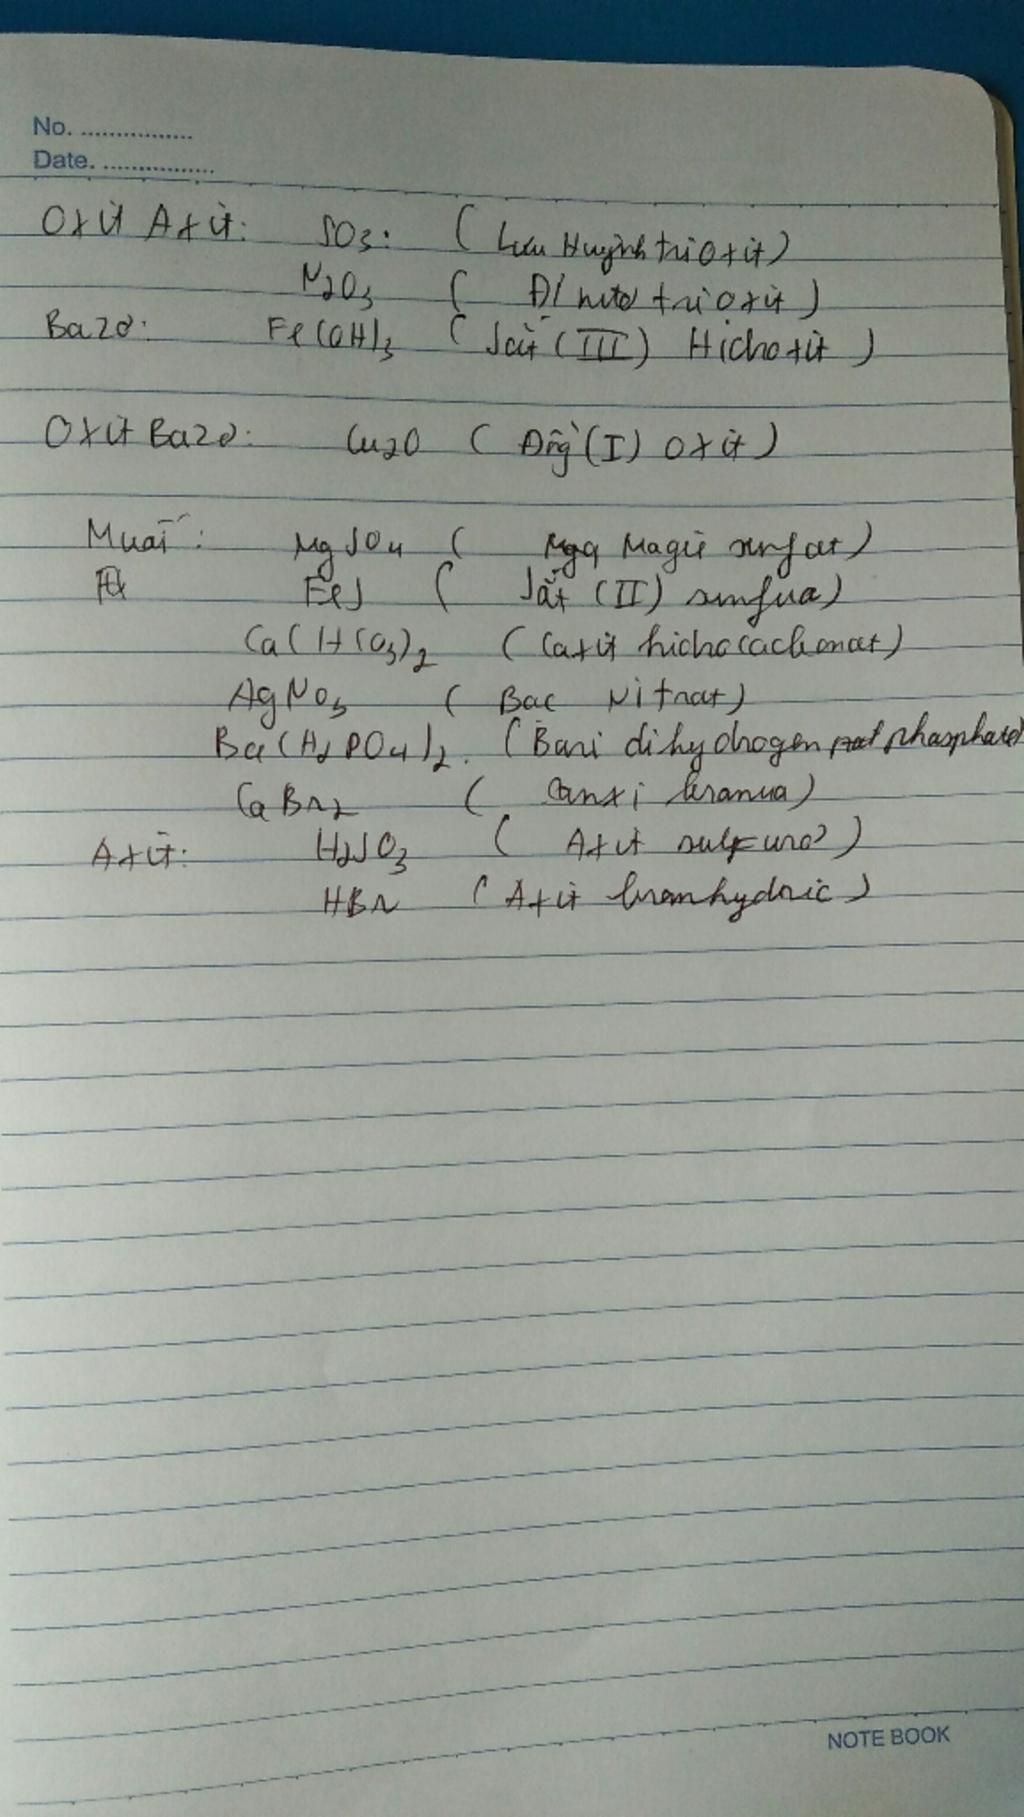 No. ................
Date. ................
Oxit Axit: SO3: (Lưu Huỳnh tri Oxit)
N2O3 (Đi nitơ tri oxit)
Bazơ: Fe(OH)3 (Sắt (III) Hidroxit)
Oxit Bazơ: Cu2O (Đồng (I) oxit)
Muối: MgSO4 ( Magiê sunfat)
FeS (Sắt (II) sunfua)
Ca(HCO3)2 (Caxit hidrocacbonat)
AgNO3 (Bac Nitrat)
Ba(H2PO4)2. (Bari dihydrogen phosphate)
CaBr2 (Canxi bromua)
Axit: H2SO3 (Axit sulfurơ)
HBr (Axit bromhydric)
NOTE BOOK